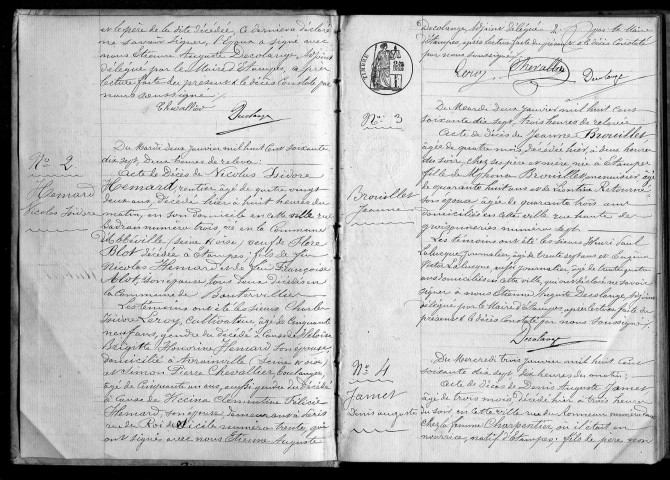 et le père de la dite décédée, ce dernier a déclaré
ne savoir signer, l'époux a signé avec
nous Etienne Auguste Decolange, Adjoint
délégué par le Maire d'Etampes, après
lecture faite du présent & le décès constaté par
nous soussigné
Chevallier
Decolange
No 2
Hemard
Nicolas Isidore
Du Mardi deux janvier mil huit cent soixante
dix sept, deux heures de relevée
Acte de Décès de Nicolas Isidore
Hemard, rentier âgé de quatre vingt
deux ans, décédé hier à huit heures du
matin, en son domicile en cette ville rue
du cadran numéro trois, né en la Commune
d'Abbéville (Seine & Oise) veuf de Flore
Blot décédée à Etampes; fils de feu
Nicolas Hemard et de feue Françoise
Blot, son épouse, tous deux décédés en
la Commune de Bouterviller
Les témoins ont été les Sieurs Charles
Isidore Leroy, Cultivateur, âgé de Cinquante
neuf ans, gendre du décédé à cause de Héloïse
Brigitte Honorine Hemard son épouse
domicilié à (Seine & Oise)
et Simon Pierre Chevallier, boulanger,
âgé de Cinquante un ans, aussi gendre du décédé
à cause de Clémentine Félicie
Hemard, son épouse, demeurant à Paris
rue du Roi de Sicile numéro trente, qui
ont signé avec nous Etienne Auguste
Decolange, Adjoint délégué par le Maire
d'Etampes, après lecture faite du présent & le décès constaté
par nous soussigné
Leroy Chevallier Decolange
No 3
Brouillet
Jeanne
Du Mardi deux janvier mil huit cent
soixante dix sept, trois heures de relevée
Acte de décès de Jeanne Brouillet
âgée de quatre mois, décédée hier, à deux heures
du soir, chez ses père et mère, née à Etampes
fille de Alphonse Brouillet, menuisier âgé
de quarante huit ans et de
son épouse, âgée de quarante trois ans
domiciliés en cette ville rue haute de
numéro sept.
Les témoins ont été les sieurs Henri Paul
Labesque, journalier, âgé de trente sept ans et Eugène
Victor Labesque aussi journalier, âgé de trente quatre
ans domiciliés en cette ville, qui ont déclaré ne savoir
signer & nous Etienne Auguste Decolange Adjoint
délégué par le Maire d'Etampes, après lecture faite du
présent & le décès constaté par nous soussigné
Decolange
No 4
Jamet
Denis Auguste
Du Mercredi trois janvier mil huit cent
soixante dix sept, dix heures du matin
Acte de décès de Denis Auguste Jamet
âgé de trois mois, décédé hier à trois heures
du soir en cette ville rue du numéro
chez la femme Charpentier, où il était en
nourrice, natif d'Etampes: fils de père non